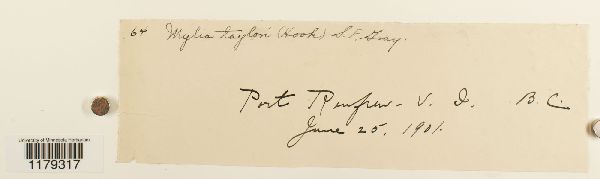 64 Mylia taylori (Hook) S.F. Gray.
Port Renfrew - V. I. B.C.
June 25, 1901.
University of Minnesota Herbarium
1179317